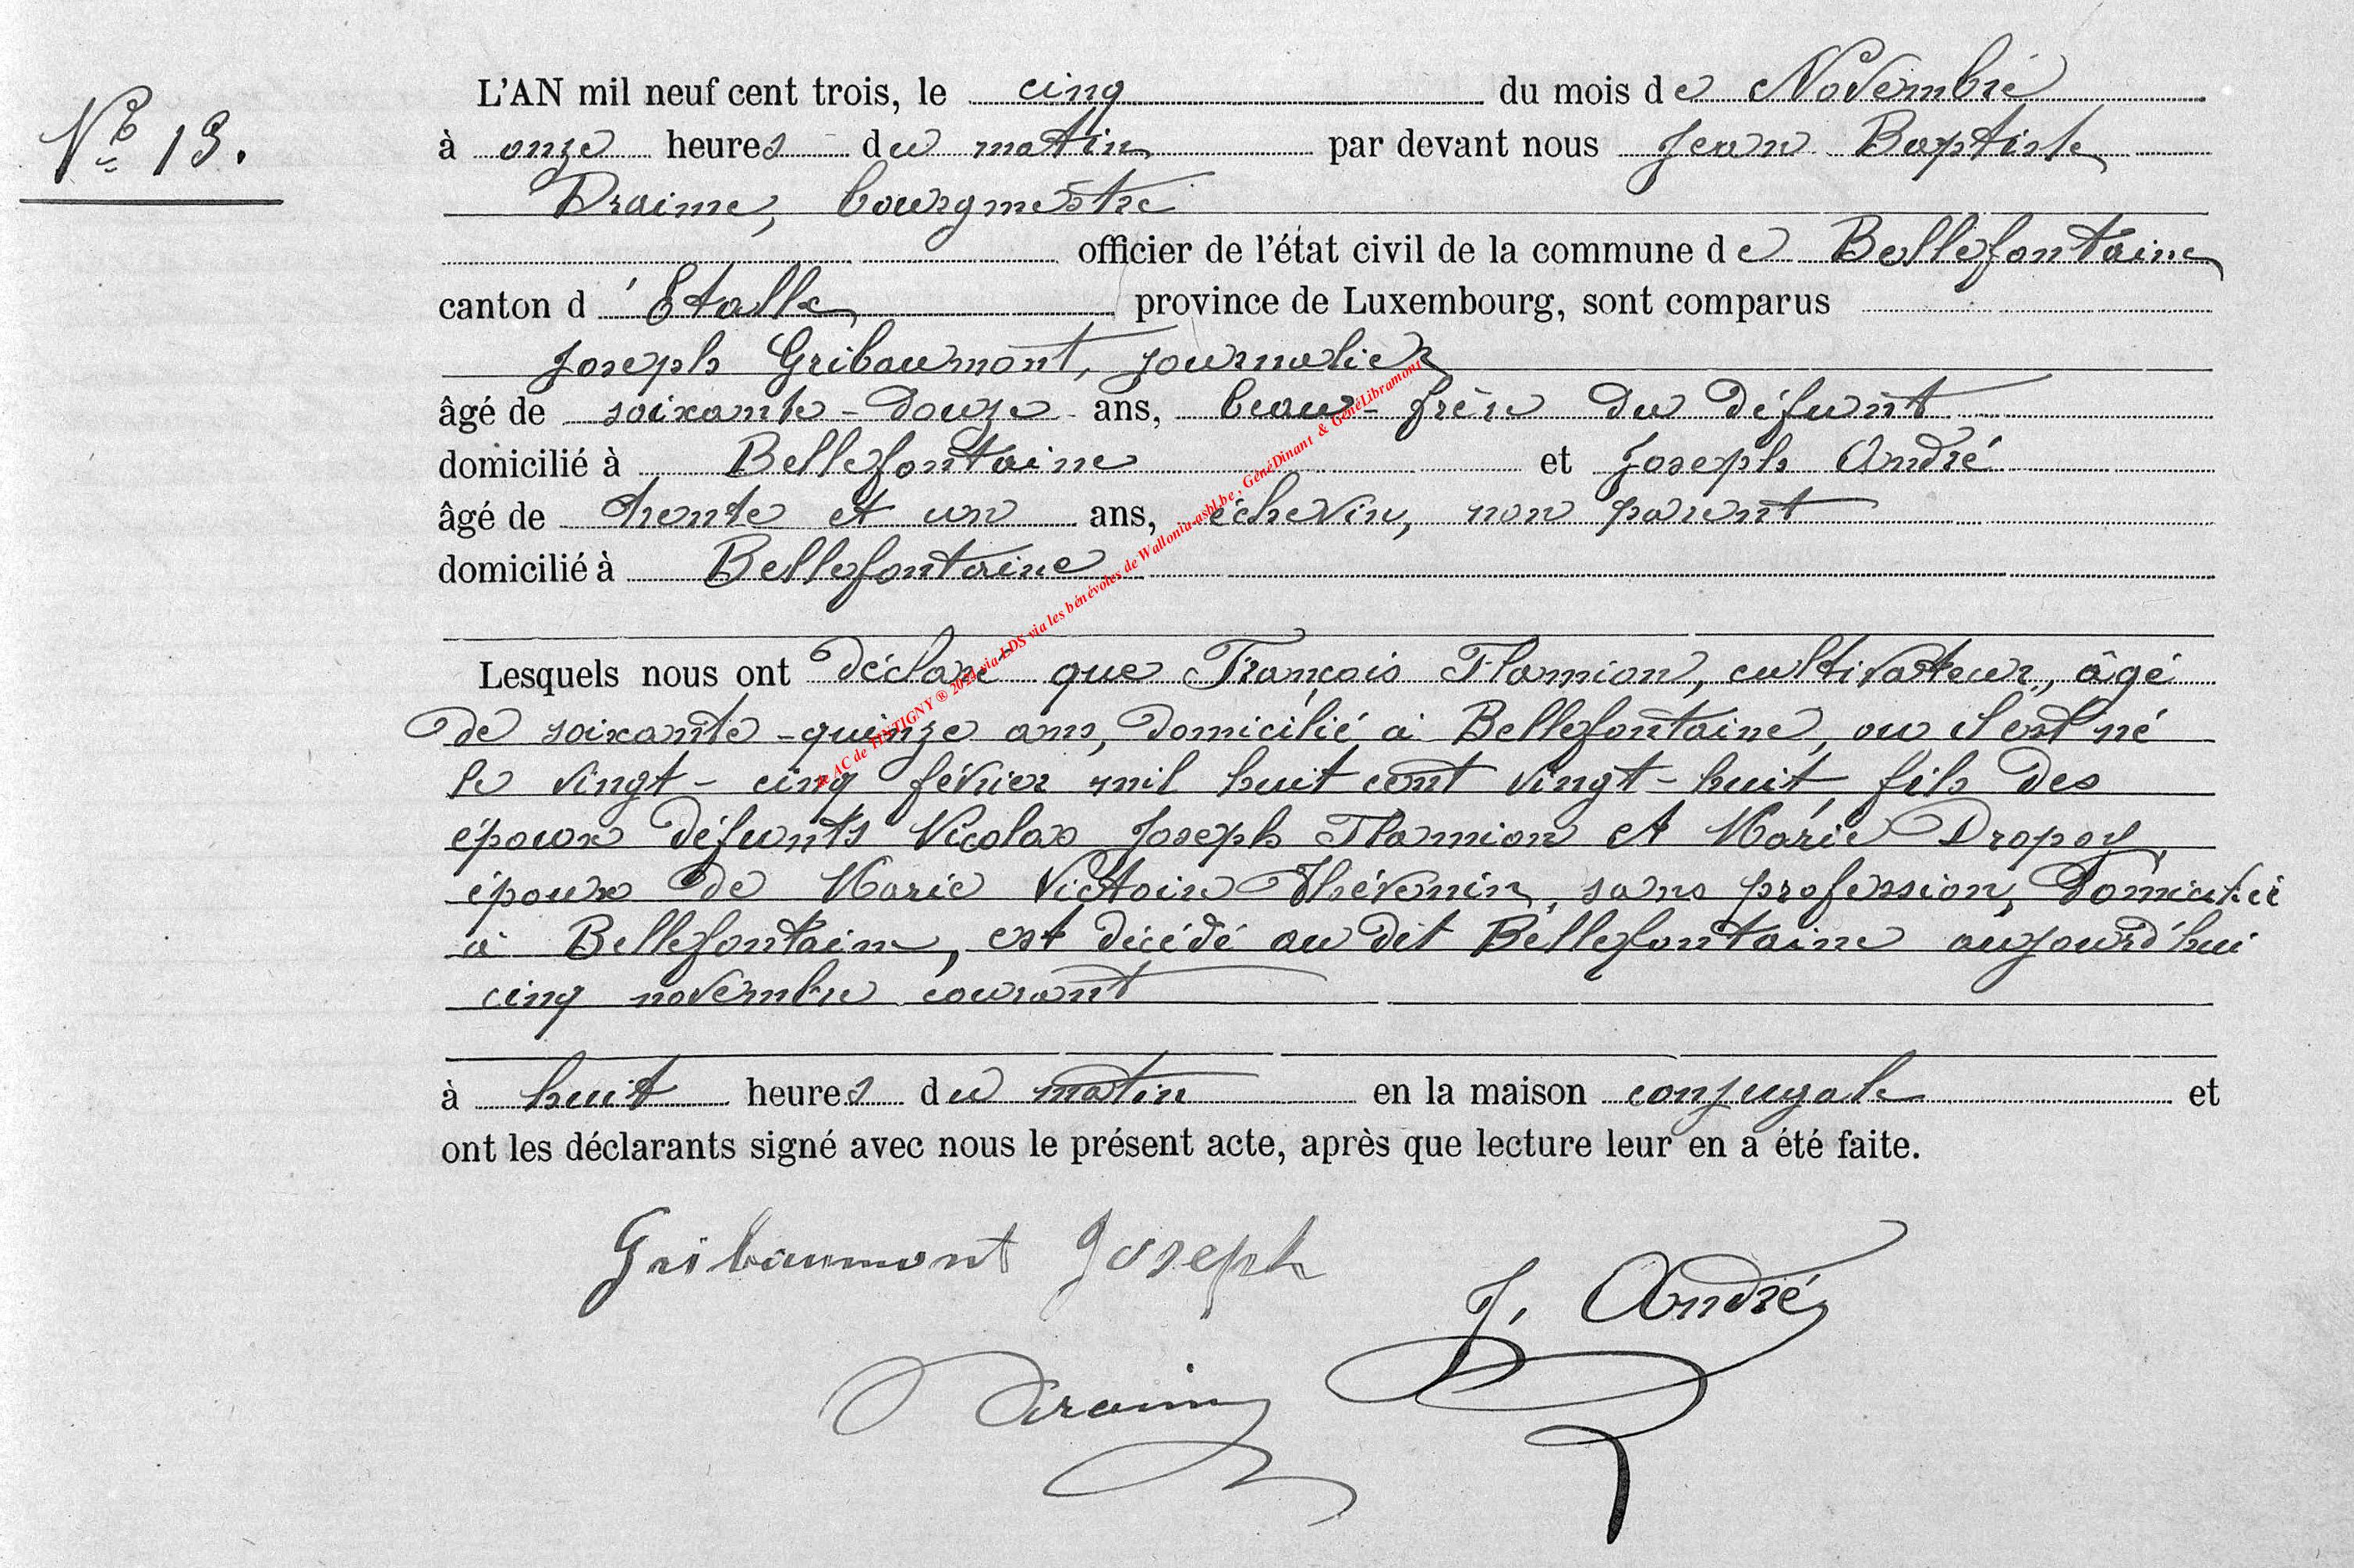 Nº 13.
L'AN mil neuf cent trois, le cinq du mois de Novembre
à onze heures du matin par devant nous Jean Baptiste
Draime, bourgmestre
officier de l'état civil de la commune de Bellefontaine
canton d'Etalle province de Luxembourg, sont comparus
Joseph Gribaumont, journalier
âgé de soixante-douze ans, beau-frère du défunt
domicilié à Bellefontaine et Joseph André
âgé de trente et un ans, échevin, non parent
domicilié à Bellefontaine
Lesquels nous ont déclaré que François Flamion, cultivateur, âgé
de soixante-quinze ans, domicilié à Bellefontaine, ou il est né
le vingt-cinq février mil huit cent vingt-huit, fils des
époux défunts Nicolas Joseph Flamion et Marie Dropsy,
époux de Marie Victoire Thévenin, sans profession, domiciliée
à Bellefontaine, est décédé au dit Bellefontaine aujourd'hui
cinq novembre courant
à huit heures du matin en la maison conjugale et
ont les déclarants signé avec nous le présent acte, après que lecture leur en a été faite.
Gribaumont Joseph
J. André
Draime
AC de TINTIGNY ® 2024 via LDS via les bénévoles de Wallonia-asbl.be, GénéDinant & GénéLibramont